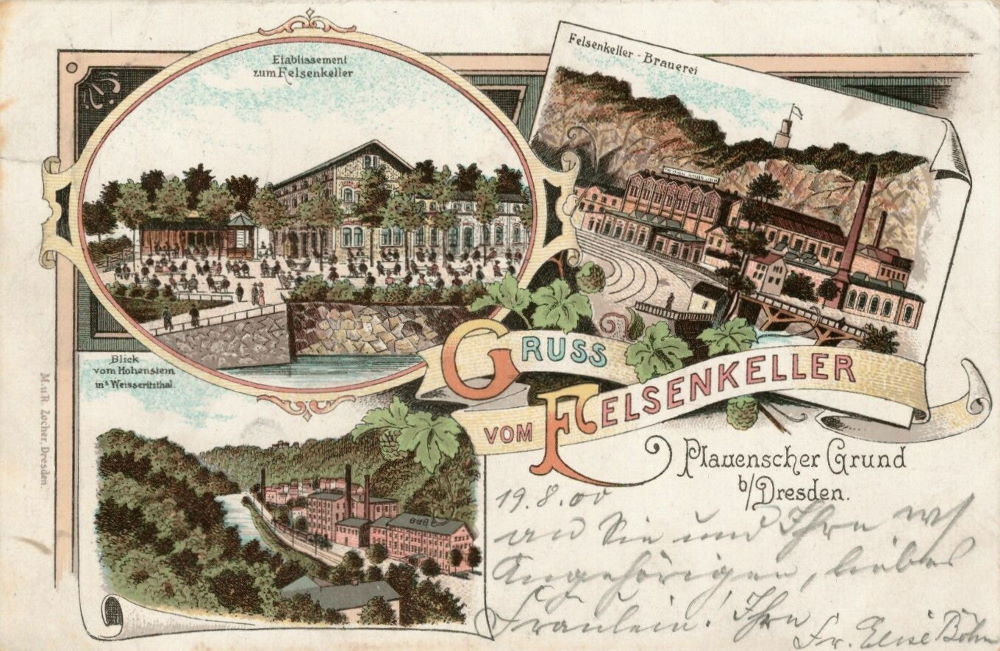 Etablissement
zum Felsenkeller
Felsenkeller - Brauerei
Blick
vom Hohenstein
in's Weisseritzthal.
M. u. R. Zocher, Dresden.
GRUSS
VOM FELSENKELLER
Plauenscher Grund
b/Dresden.
19.8.00
an Sie und Ihre
Angehörigen, liebes
Fräulein! Ihre
Fr. Elise Böhm